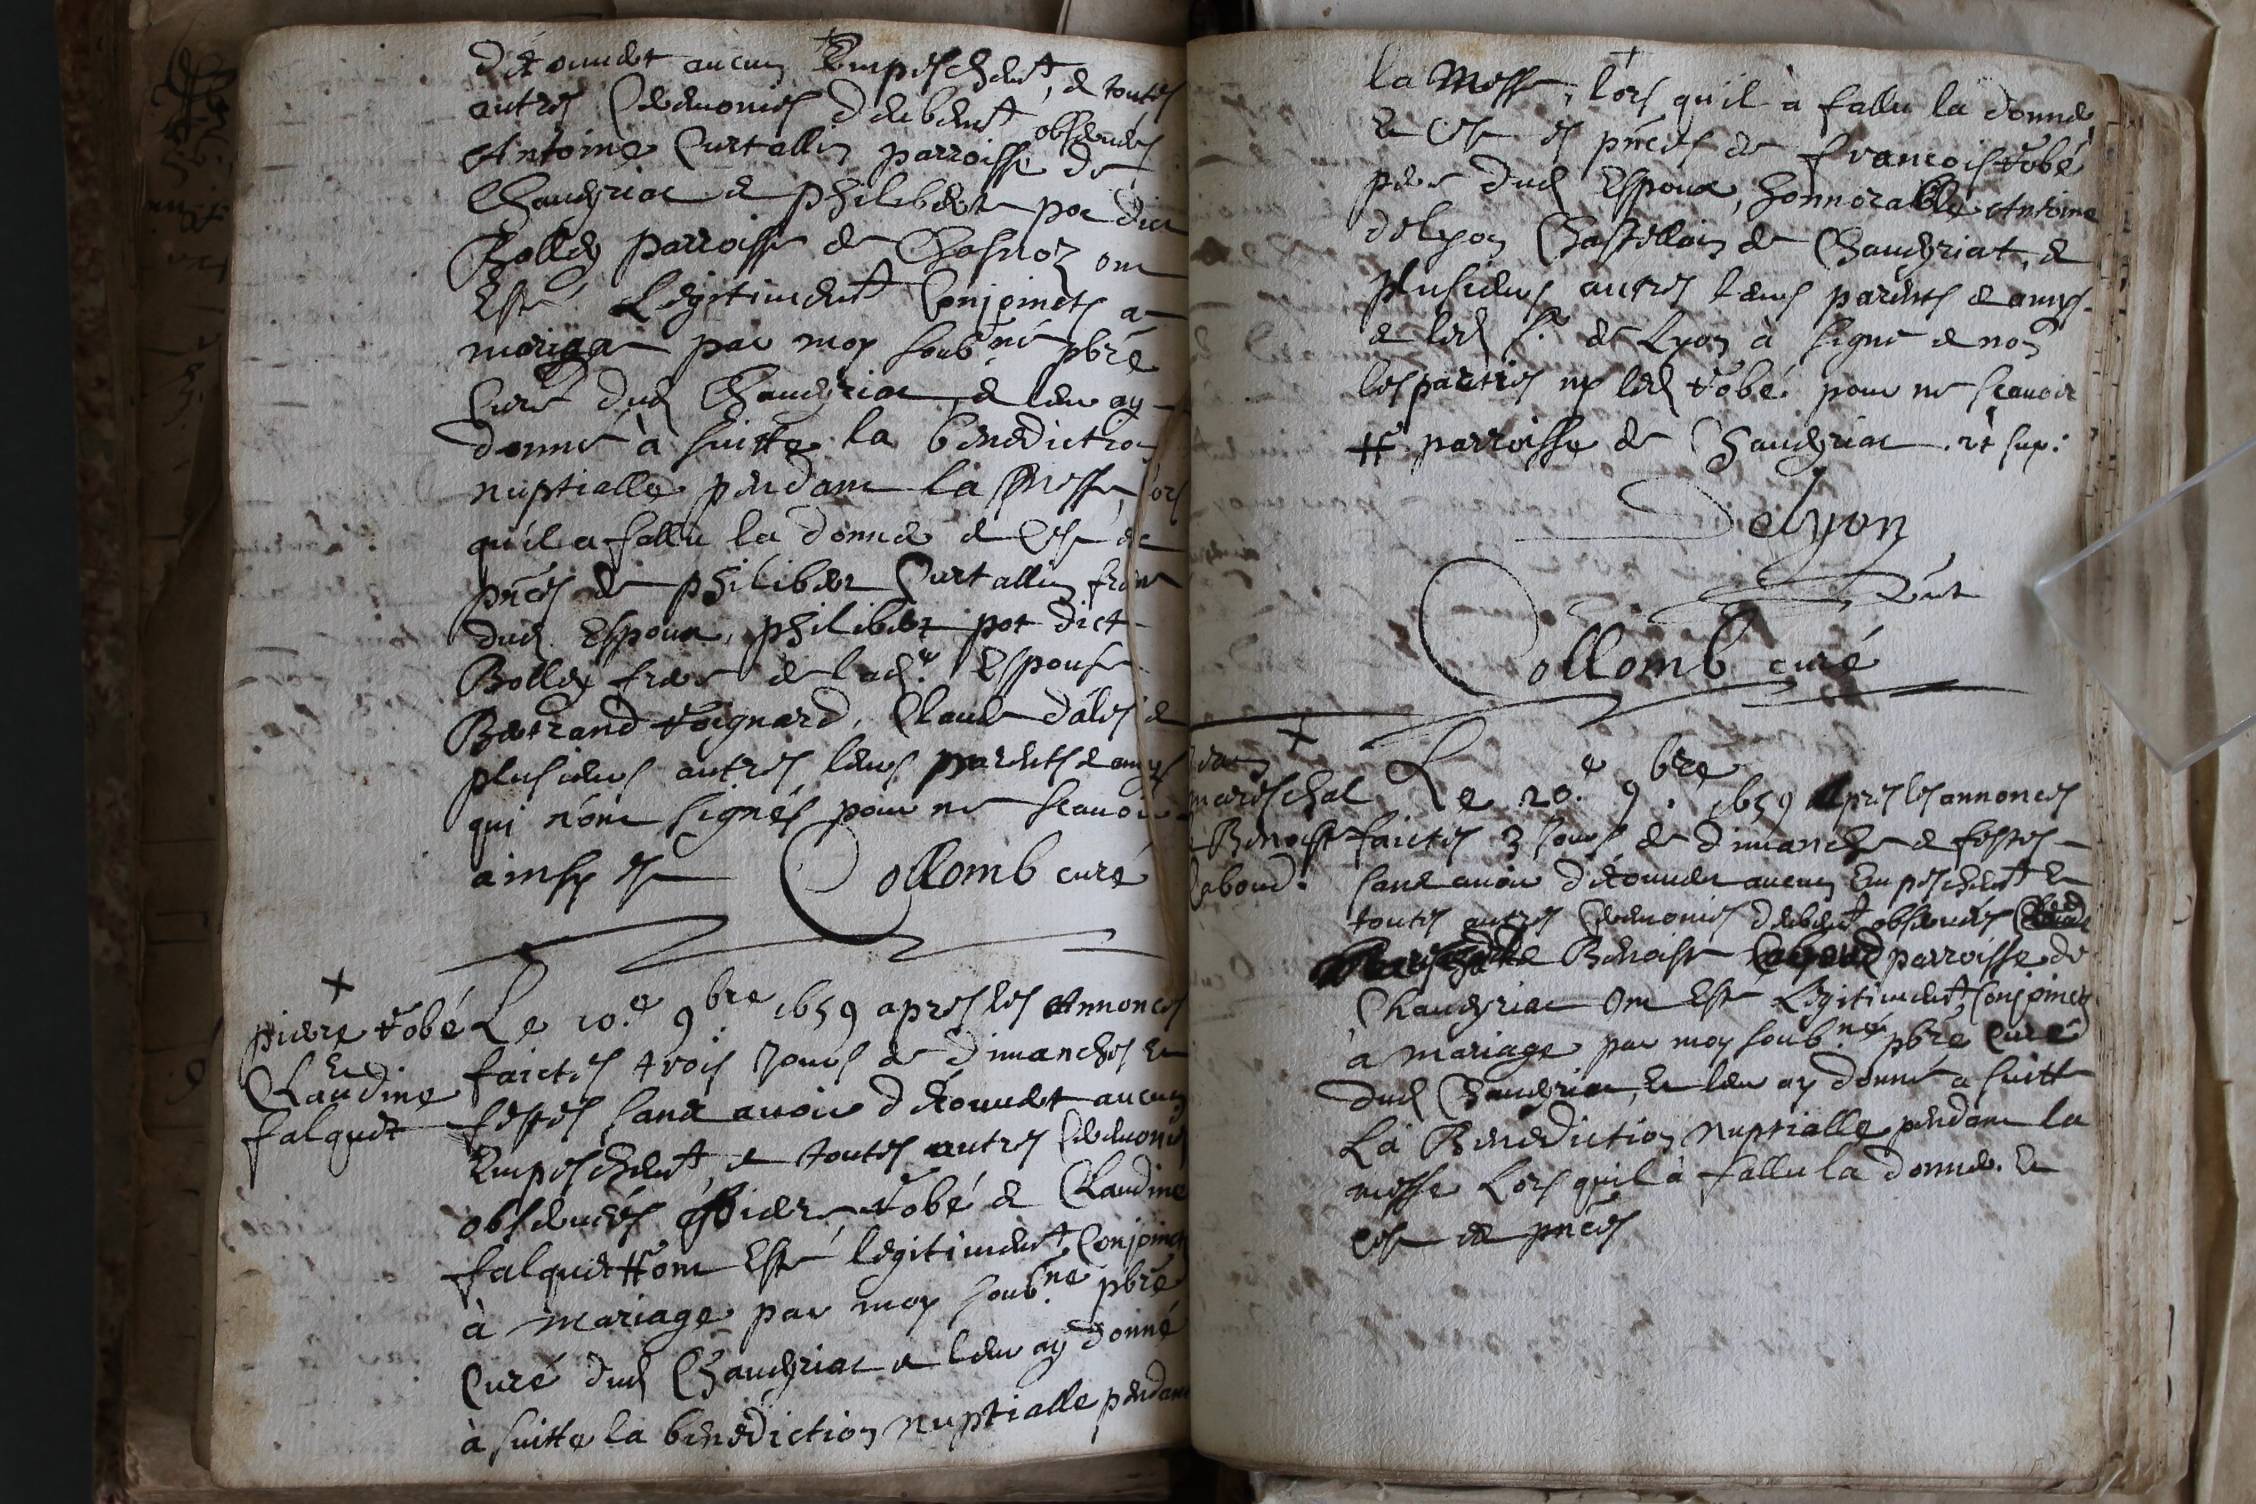 déscouuert aucun Empeschemt, & toutes
autres Ceremonies deubemt obserueés
Antoine Curtallin parroisse de
Chaueyriat & philiberte pot dict
Bolley parroisse de Chosnoz ont
Esté Légitimemt Conjoincts a
mariage par moy soubné pbré
Curé dud Chaueyriat, & leur ay
donné à suitte la benediction
nuptialle pendant la Messe, lors
qu'il a fallu la donner & Ce en
pnces de philibert Curtallin frere
dud Espoux, philibert pot dict
Bolley frere de lade Espouse
Bertrand Voignard, Claude d'alés &
plusieurs autres leurs parents & amys
qui n'ont signés pour ne scauoir
ainsy est Collomb curé
pierre Vobé
Et
Claudine
falquet
Le 20.e 9bre 1659 apres les Annonces
faictes trois Jours de dimanches Et
festes sans auoir déscouuert aucun
Empeschemt, & toutes autres Ceremonies
obserueés pierre Vobé & Claudine
falquet # ont Esté légitimemt Conjoincts
à mariage par moy soubné pbré
Curé dud Chaueyriat & leur ay donné
à suitte la bénédiction nuptialle pendant
la Messe, l'ors qu'il à fallu la donner
& Ce en pnces de francois Vobé
pere dud Espoux, honnorable Antoine
delyon Chastellain de Chaueyriat, &
plusieurs autres leurs parents & amys
& led Sr de Lyon à signé & non
les parties ny led Vobé pour ne scauoir
# parroisse de Chaueyriat. vt sup:
Delyon
Collomb curé
mareschal
& Benoiste
Labourd.
Le 20.e 9.bre 1659 Apres les annonces
faictes 3 Jours de dimanche & festes
sans auoir déscouuert aucun Empeschemt Et
toutes autres Ceremonies deubemt obserueés
Benoiste parroisse de
Chaueyriat Ont Esté Légitimemt Conjoincts
à mariage par moy soubné pbré Curé
dud Chaueyriat, Et leur ay donné a suitte
La Benediction nuptialle pendant la
messe Lors quil à fallu la donner. Et
Ce en pnces